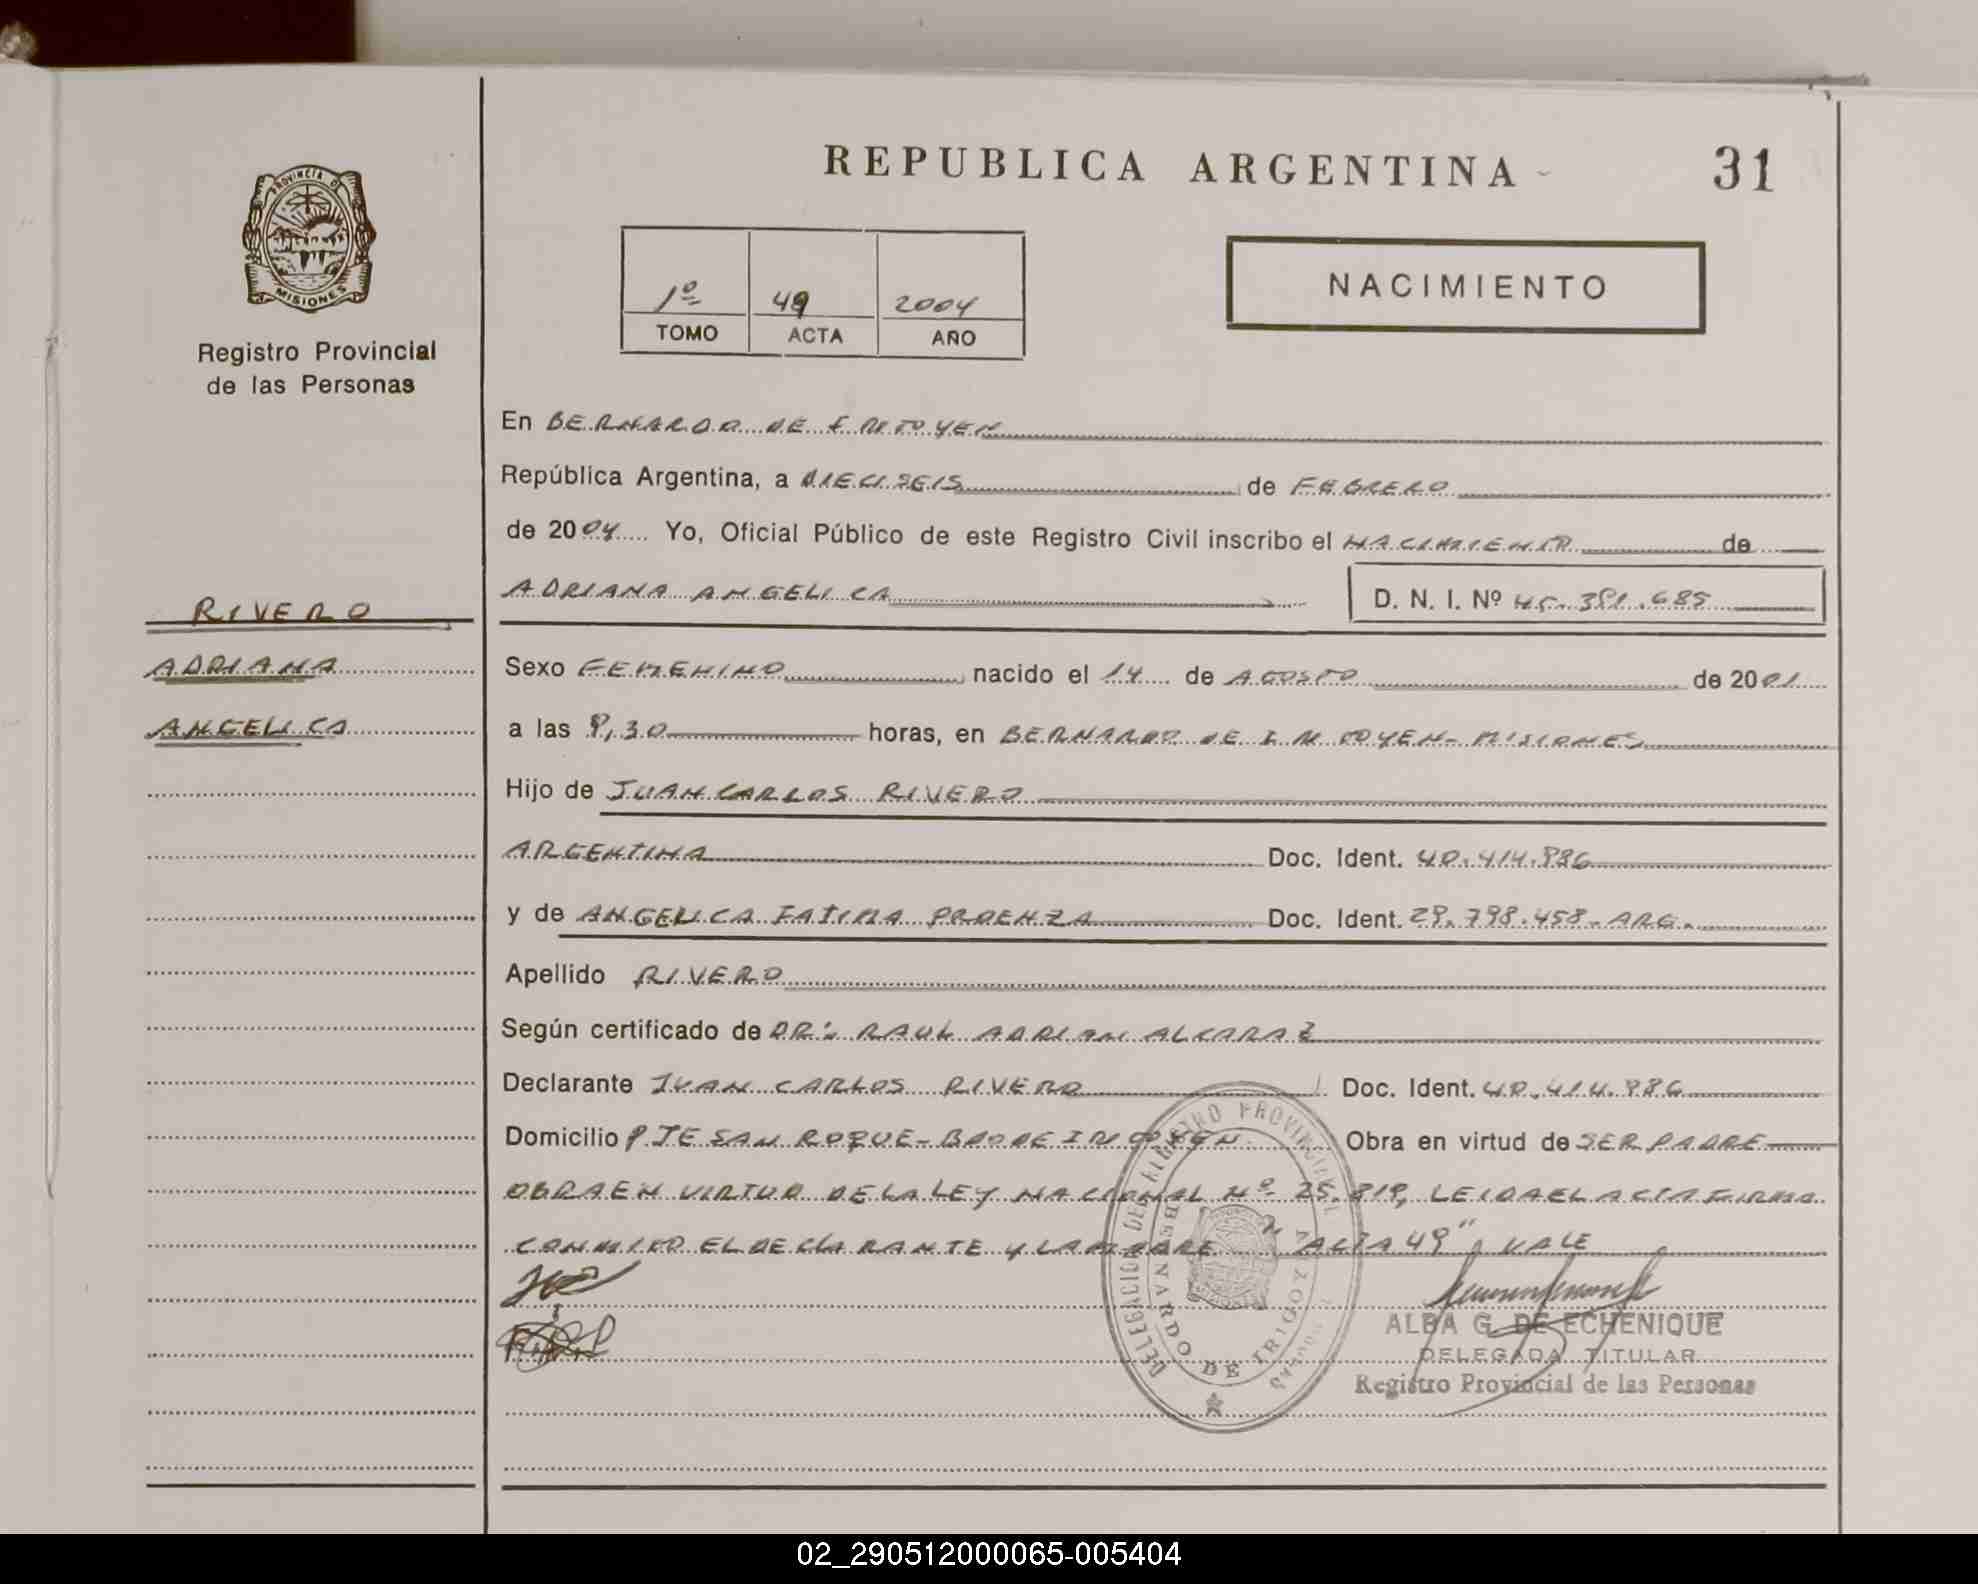 REPUBLICA ARGENTINA
31
PROVINCIA DE
MISIONES
Registro Provincial
de las Personas
1º 49 2004
TOMO ACTA AÑO
NACIMIENTO
RIVERO
ADRIANA
ANGELICA
En BERNARDO DE IRIGOYEN
República Argentina, a DIECISEIS de FEBRERO
de 2004 Yo, Oficial Público de este Registro Civil inscribo el NACIMIENTO de
ADRIANA ANGELICA D. N. I. Nº 45.391.685
Sexo FEMENINO nacido el 14 de AGOSTO de 2001
a las 8,30 horas, en BERNARDO DE IRIGOYEN- MISIONES
Hijo de JUAN CARLOS RIVERO
ARGENTINA Doc. Ident. 40.414.886
y de ANGELICA FATIMA PROENZA Doc. Ident. 28.798.458- ARG.
Apellido RIVERO
Según certificado de DR: RAUL ADRIAN ALCARAZ
Declarante JUAN CARLOS RIVERO Doc. Ident. 40.414.886
Domicilio PJE SAN ROQUE- BDO DE IRIGOYEN Obra en virtud de SER PADRE
OBRA EN VIRTUD DE LA LEY NACIONAL Nº 25.819, LEIDA EL ACTA FIRMA
CONMIGO EL DECLARANTE Y LA MADRE "ACTA 49" VALE
DELEGACION DEL REGISTRO PROVINCIAL
BERNARDO DE IRIGOYEN
ALBA G. DE ECHENIQUE
DELEGADA TITULAR
Registro Provincial de las Personas
02_290512000065-005404